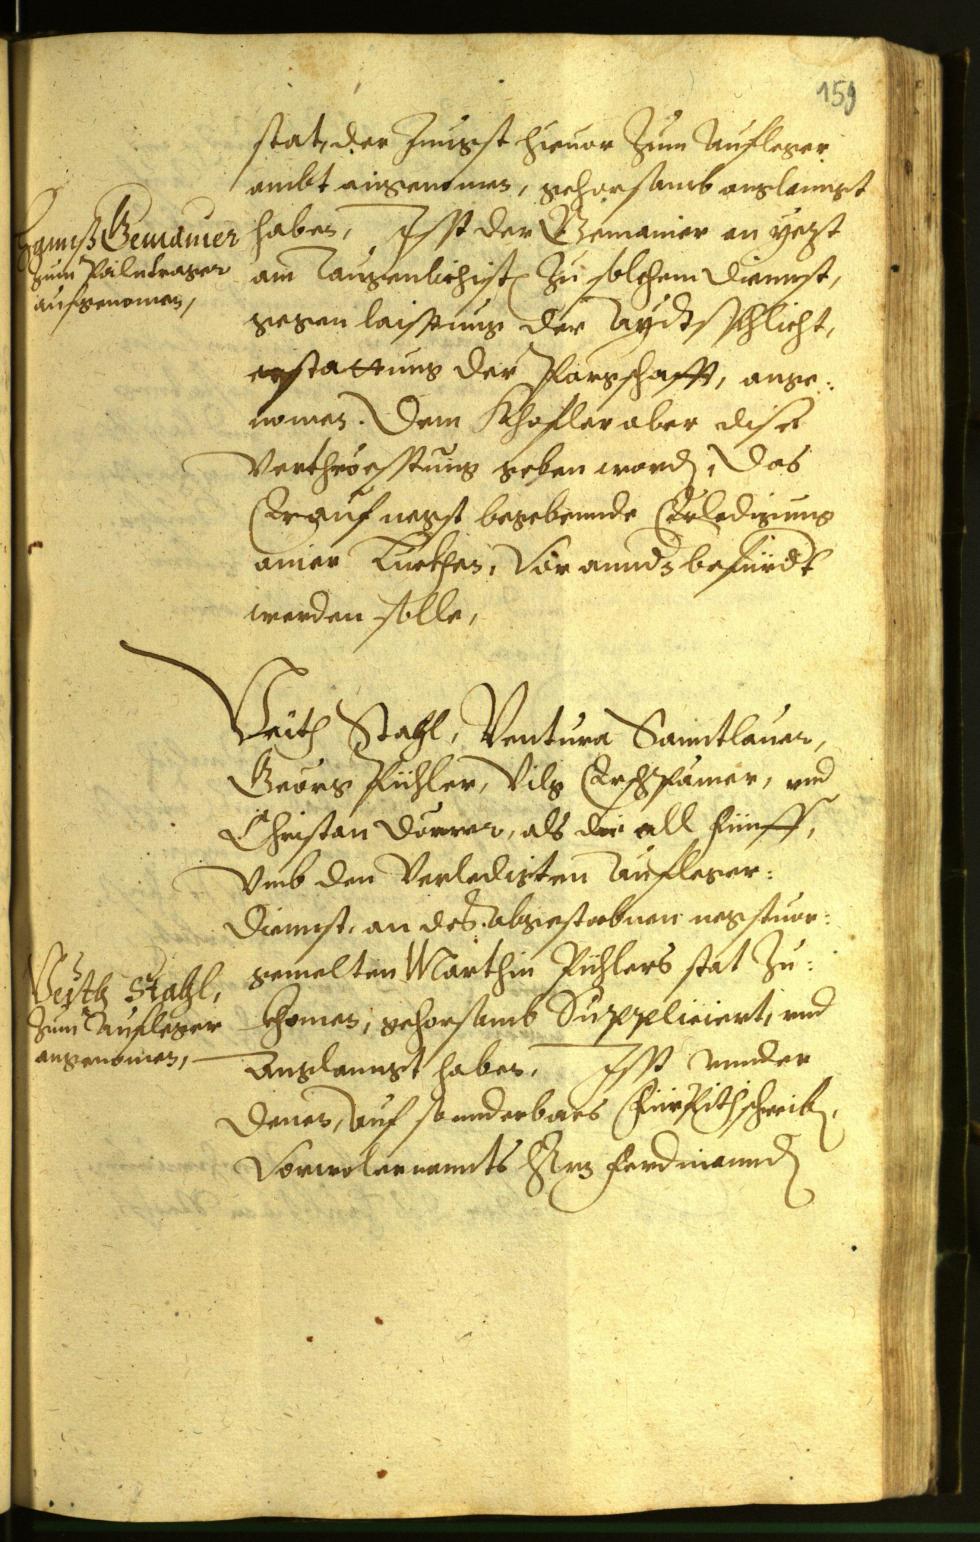 159
stat, der Jüngst hieuor Zum Aufleger
ambt angenomen, gehorsamb anglanngt
haben, Ist der Gemainer an yezt
am Taugenlichist Zu solchem Diennst,
gegen laisstung der Aydtspflicht,
erstattung der Porgschafft, ange:
nomen. Dem Khofler aber dise
Verthröesstung geben word, Das
Er auf negst begebennde Erledigung
ainer Lückhen, Vor annd befürdt
werden solle,
Hannß Gemainer
Zum Palntrager
aufgenomen,
Veith Stahl, Ventura Sanntlauer,
Georg Pichler, Vilg , vnd
Christan Dorrer, als die all fünff,
Vmb den Verledigten Aufleger:
Diennst, an des abgestorbnen negstuor:
gemelten Marthin Pichlers stat Zu:
khomen, gehorsamb Suppliciert, vnd
Anglanngt haben, Ist vnnder
denen, auf sonnderbars Fürpithschreib,
Vorwolernannts Hrn Ferdinannd
Veith Stahl,
Zum Aufleger
angenomen,